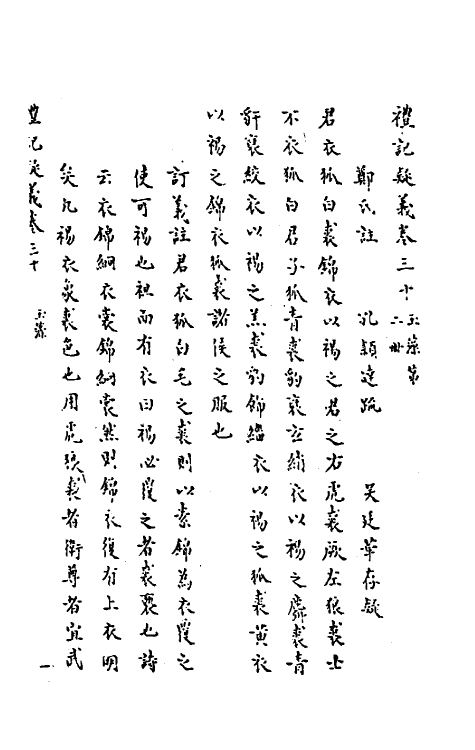 禮記疑義卷三十玉藻第六冊
鄭氏註　孔穎達疏　吳廷華存疑
君衣狐白裘錦衣以裼之君之右虎裘厥左狼裘士
不衣狐白君子狐青裘豹褎玄綃衣以裼之麛裘青
豻褎絞衣以裼之羔裘豹飾緇衣以裼之狐裘黃衣
以裼之錦衣狐裘諸侯之服也
訂義註君衣狐白毛之裘則以素錦為衣覆之
使可裼也袒而有衣曰裼必覆之者裘褻也詩
云衣錦絅衣裳錦絅裳然則錦衣復有上衣明
矣凡裼衣象裘色也用虎狼裘者衛尊者宜武
禮記疑義卷三十　玉藻　一